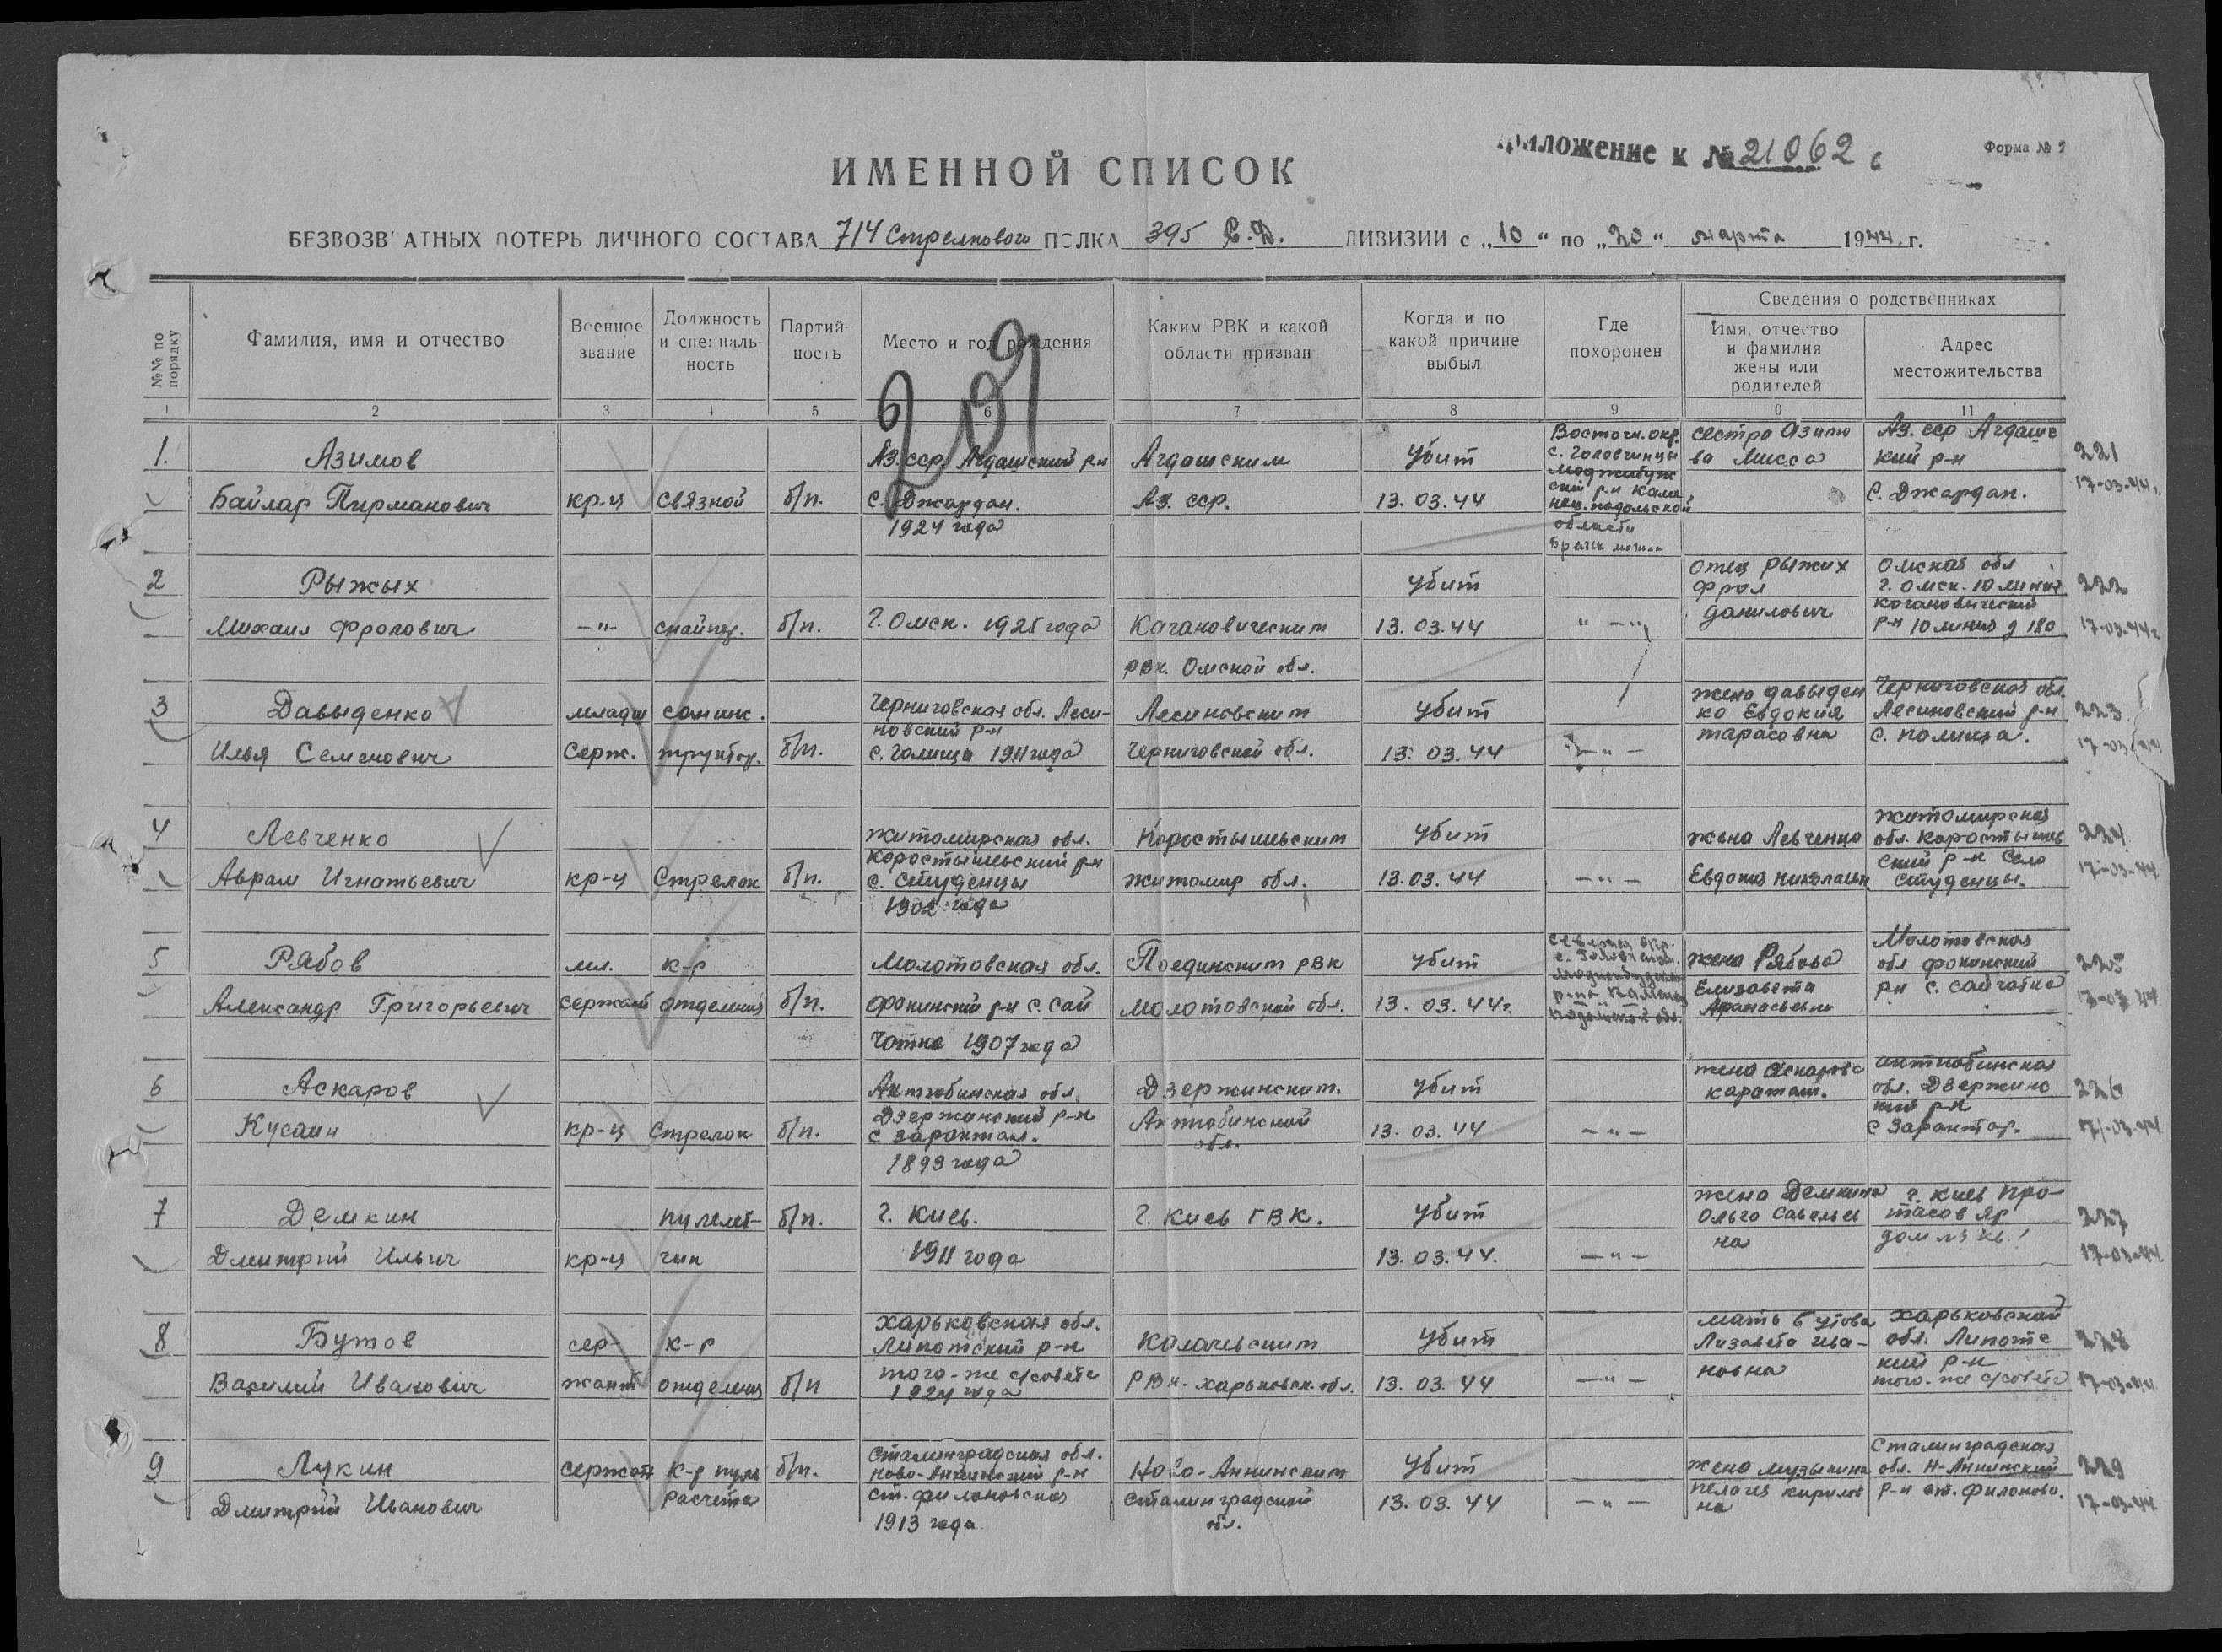 Приложение к № 21062 с
Форма № 2
ИМЕННОЙ СПИСОК
БЕЗВОЗВРАТНЫХ ПОТЕРЬ ЛИЧНОГО СОСТАВА 714 Стрелкового ПОЛКА 395 С.Д. ДИВИЗИИ с „10“ по „20“ марта 1944 г.
№№ по порядку
Фамилия, имя и отчество
Военное звание
Должность и специальность
Партийность
Место и год рождения
Каким РВК и какой области призван
Когда и по какой причине выбыл
Где похоронен
Сведения о родственниках
Имя, отчество и фамилия жены или родителей
Адрес местожительства
1 2 3 4 5 6 7 8 9 10 11
209
1. Азимов Аз.сср. Агдашский р-н Агдашским Убит Восточн. окр. сестра Азимо Аз. сср Агдашс 221
с. Головчинцы ва Мисса кий р-н
Байлар Пирманович кр-ц связной б/п. с. Джардан. Аз. сср. 13.03.44 ский р-н Каме С. Джардан. 17-03-44г.
1924 года нец-подольской
области
Братск могила
2 Рыжых убит отец Рыжих Омская обл 222
фрол г. Омск. 10 линия
Михаил Фролович —"— снайпер. б/п. г. Омск. 1925 года Кагановическим 13.03.44 " — " данилович Р-н 10 линия д 180 17-03-44г
РВК. Омской обл.
3 Давыденко младш санинс. Черниговская обл. Леси- Лесиновским Убит жена давыден Черниговская обл. 223
новский р-н ко Евдокия Лесиновский р-н
Илья Семенович Серж. труктор. б/п. с. Галица 1911 года Черниговской обл. 13.03.44 — " — тарасовна с. галица. 17-03-44
4 Левченко житомирская обл. Коростышевским Убит жена Левченко житомирская 224
коростышевский р-н обл. Коростышев
Аврам Игнатьевич кр-ц Стрелок б/п. с. Студенцы житомир обл. 13.03.44 — " — Евдокия николаевн ский р-н Село 17-03-44
1902 года Студенцы.
5 Рябов мл. к-р Молотовская обл. РВК Убит жена Рябова Молотовская 225
обл фокинский
Александр Григорьевич сержант отделения б/п. фокинский р-н с. Сай Молотовской обл. 13.03.44г. Елизавета р-н с. сайчатка 17-03-44
чатка 1907 года Афанасьевна
6 Аскаров Актюбинская обл. Дзержинским. Убит жена Аскарова актюбинская 226
Дзержинский р-н обл. Дзержинс
Кусаин кр-ц Стрелок б/п. Актюбинской 13.03.44 — " — кий р-н 17-03-44
1893 года обл.
7 Демкин пулемет- б/п. г. Киев. г. Киев ГВК. Убит жена Демкина г. Киев Про- 227
Ольга Савельев тасов Яр
Дмитрий Ильич кр-ц чик 1911 года 13.03.44. — " — на 17-03-44
8 Бутов сер- к-р харьковская обл. Убит мать Бутова харьковской 228
р-н Лизавета ива- обл.
Василий Иванович жант отделения б/п того-же с/совета РВК. харьковск. обл. 13.03.44 — " — новна кий р-н 17-03-44
1924 года того-же с/совета
9 Лукин сержант к-р пул б/п. Сталинградская обл. Ново-Аннинским Убит жена Сталинградская 229
Ново-Аннинский р-н обл. Н-Аннинский
Дмитрий Иванович расчета ст. филоновская Сталинградской 13.03.44 — " — пелагея кирилов р-н ст. филоново. 17-03-44
1913 года обл. на